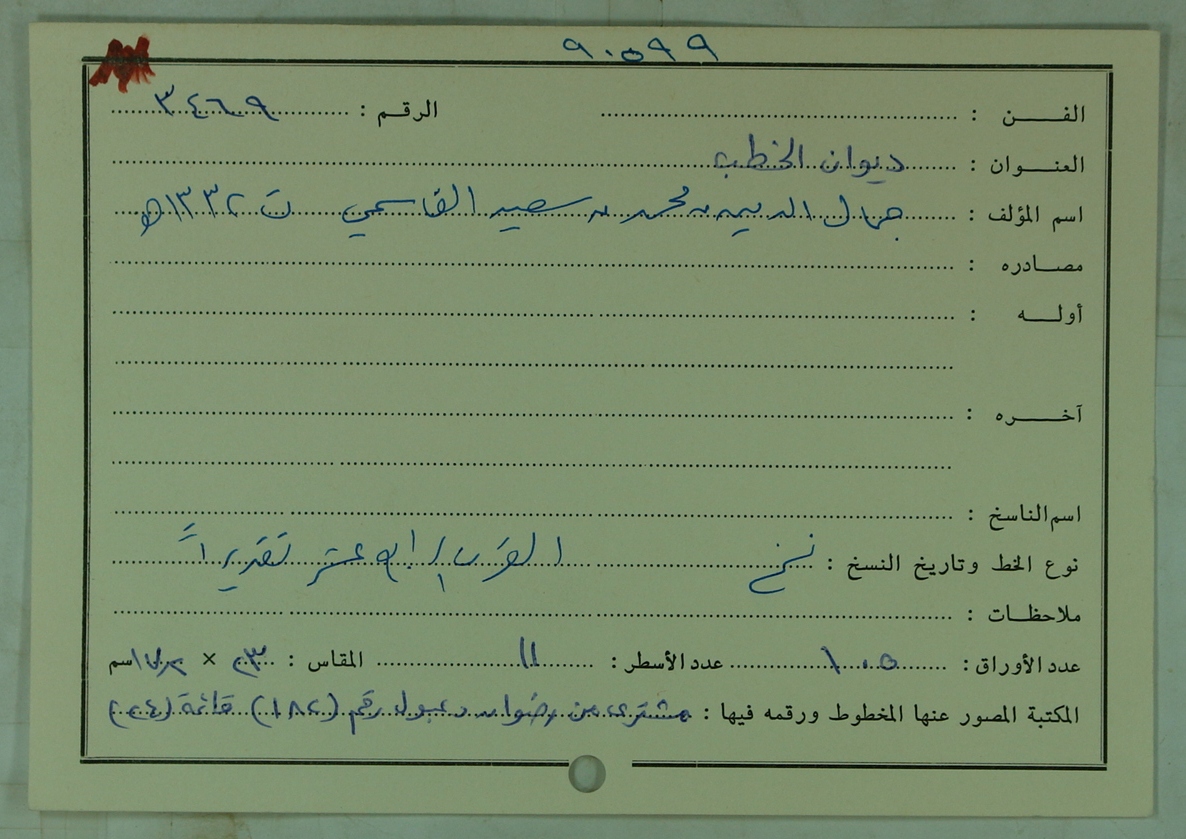 ٩٠٥٩٩
الفـــن : الرقم : ٣٤٦٩
العنـــوان : ديوان الخطب
اسم المؤلف : جمال الدين بن محمد بن سعيد القاسمي ت ١٣٣٢هـ
مصــادره :
أولـــه :
آخـــره :
اسم الناسخ :
نوع الخط وتاريخ النسخ : نسخ القرن الرابع عشر تقديراً
ملاحظــات :
عدد الأوراق : ١٠٥ عدد الأسطر : ١١ المقاس : ٢٣ × سم
المكتبة المصور عنها المخطوط ورقمه فيها : مشترى من رضوان دعبول رقم (١٨٢) قائمة (٢٤)